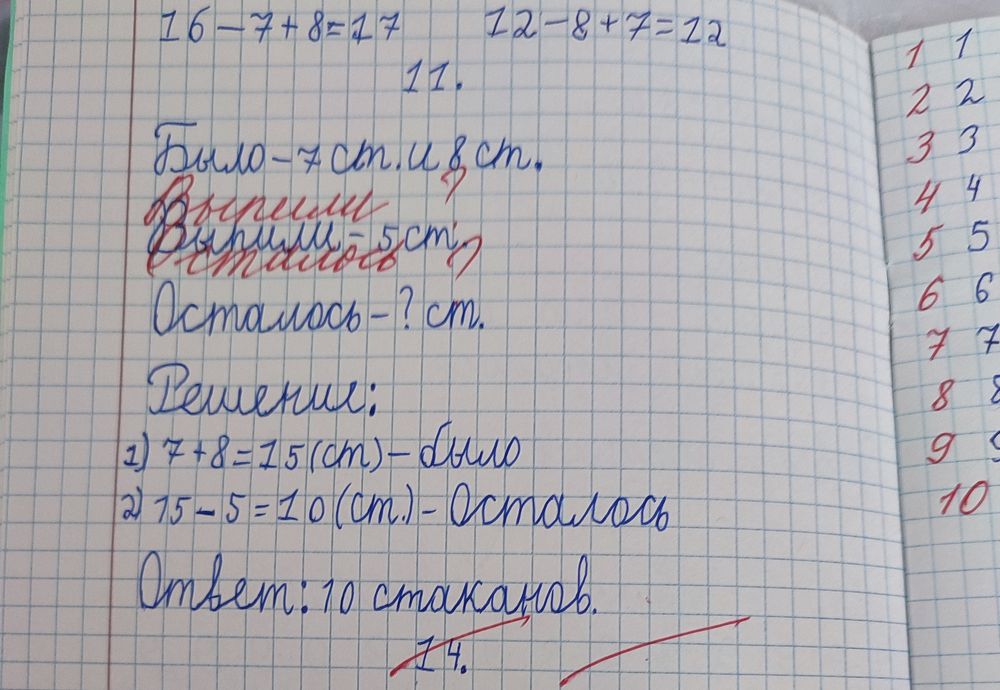 16-7+8=17 12-8+7=12
11.
Было-7 ст. и 8 ст.
Выпили
Выпили-5 ст.
Осталось
Осталось-? ст.
Решения:
1) 7+8=15(ст)-было
2) 15-5=10(ст.)-Осталось
Ответ: 10 стаканов.
14.
1 1
2 2
3 3
4 4
5 5
6 6
7 7
8 8
9 9
10